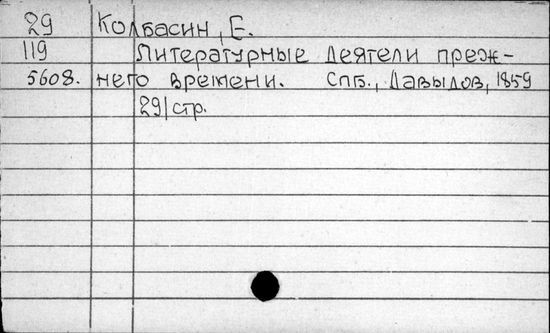 29 Колбасин, Е.
119 Литературные деятели преж-
5608. него времени. Спб., Давыдов, 1859
291 стр.